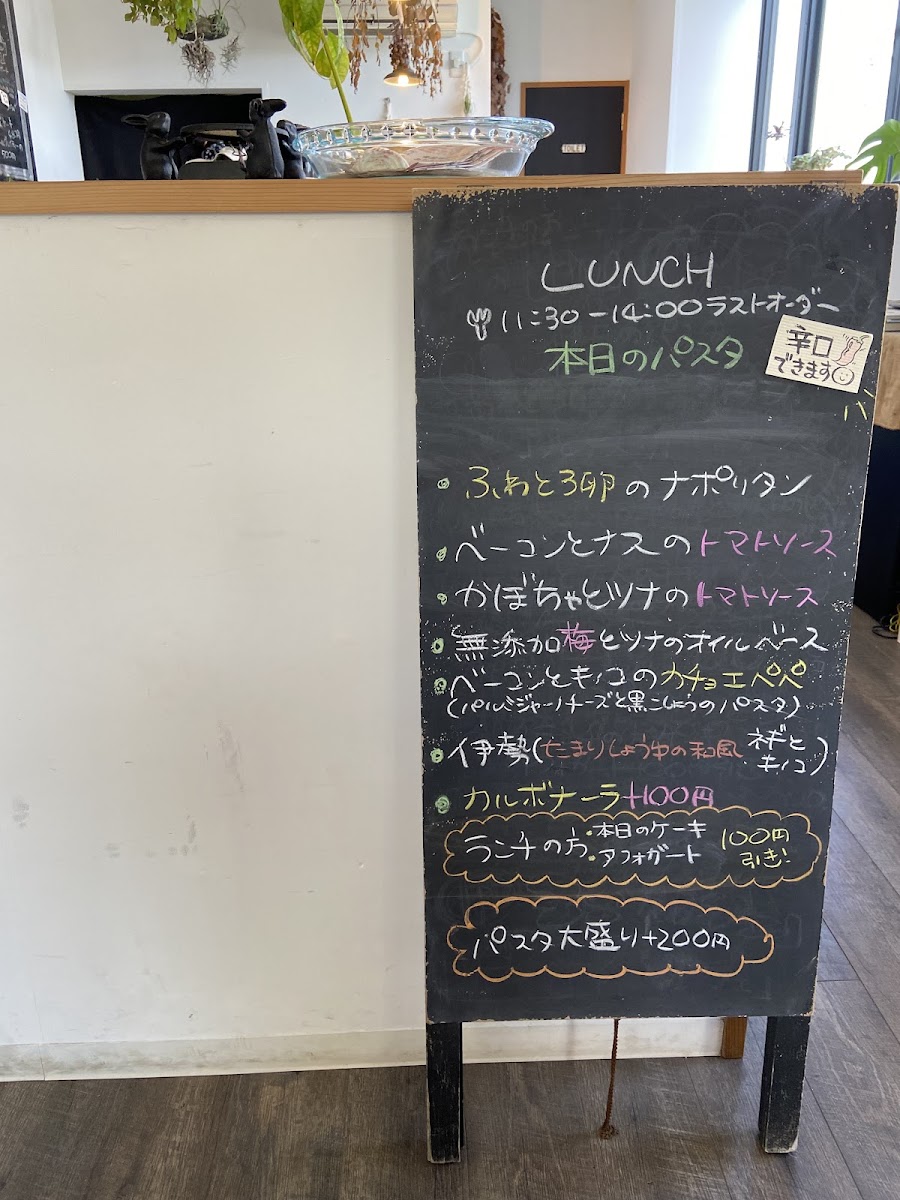 LUNCH
11:30-14:00ラストオーダー
本日のパスタ
辛口
できます
・ふわとろ卵のナポリタン
・ベーコンとナスのトマトソース
・かぼちゃとツナのトマトソース
・無添加梅とツナのオイルベース
・ベーコンとキノコのカチョエペペ
(パルミジャーノチーズと黒こしょうのパスタ)
・伊勢(たまりしょうゆの和風 ネギとキノコ)
・カルボナーラ+100円
ランチの方・本日のケーキ
・アフォガート
100円
引き!
パスタ大盛り+200円
TOILET